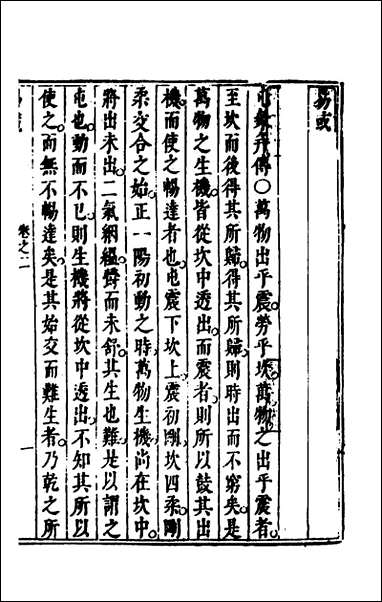 易或
屯彖并傳○萬物出乎震。勞乎坎。萬物之出乎震者。
至坎而後得其所歸。得其所歸。則時出而不窮矣。是
萬物之生機。皆從坎中透出。而震者。則所以鼓其出
機。而使之暢達者也。屯震下坎上。震初剛。坎四柔。剛
柔交合之始。正一陽初動之時。萬物生機。尚在坎中。
將出未出。二氣絪縕。欝而未舒。其生也難。是以謂之
屯也。動而不已。則生機將從坎中透出。不知其所以
使之。而無不暢達矣。是其始交而難生者。乃乾之所
卷之二
一